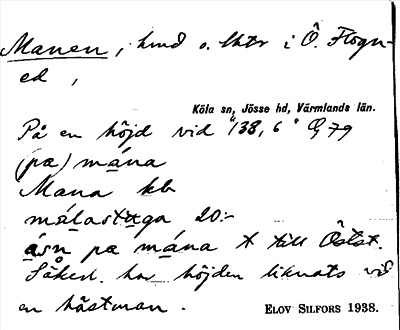 Manen, hmd o. lhtr i Ö. Flogn-
ed,
Köla sn, Jösse hd, Värmlands län.
På en höjd vid "138,6" G 79
(pæ) mána
Mana kb
málastuga 20:-
ásn pæ mána x till Östst.
Säkerl. har höjden liknats vid
en hästman.
ELOV SILFORS 1938.